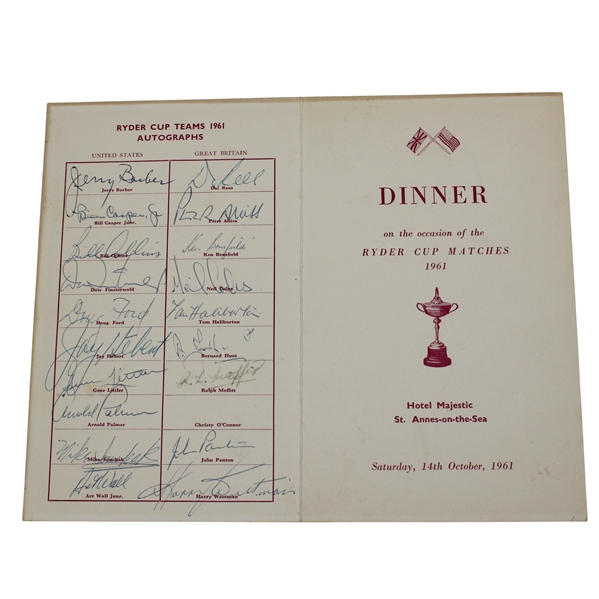 RYDER CUP TEAMS 1961
AUTOGRAPHS
UNITED STATES
GREAT BRITAIN
Jerry Barber
Jerry Barber
Dai Rees
Dai Rees
Bill Casper, Jr
Bill Casper Junr.
Peter Alliss
Peter Alliss
Bill Collins
Bill Collins
Ken Bousfield
Ken Bousfield
Dow Finsterwald
Dow Finsterwald
Neil Coles
Neil Coles
Doug Ford
Doug Ford
Tom Haliburton
Tom Haliburton
Jay Hebert
Jay Hebert
Bernard Hunt
Gene Littler
Gene Littler
R. L. Moffitt
Ralph Moffitt
Arnold Palmer
Arnold Palmer
Christy O'Connor
Mike Souchak
Mike Souchak
John Panton
John Panton
Art Wall
Art Wall Junr.
Harry Weetman
Harry Weetman
DINNER
on the occasion of the
RYDER CUP MATCHES
1961
Hotel Majestic
St. Annes-on-the-Sea
Saturday, 14th October, 1961